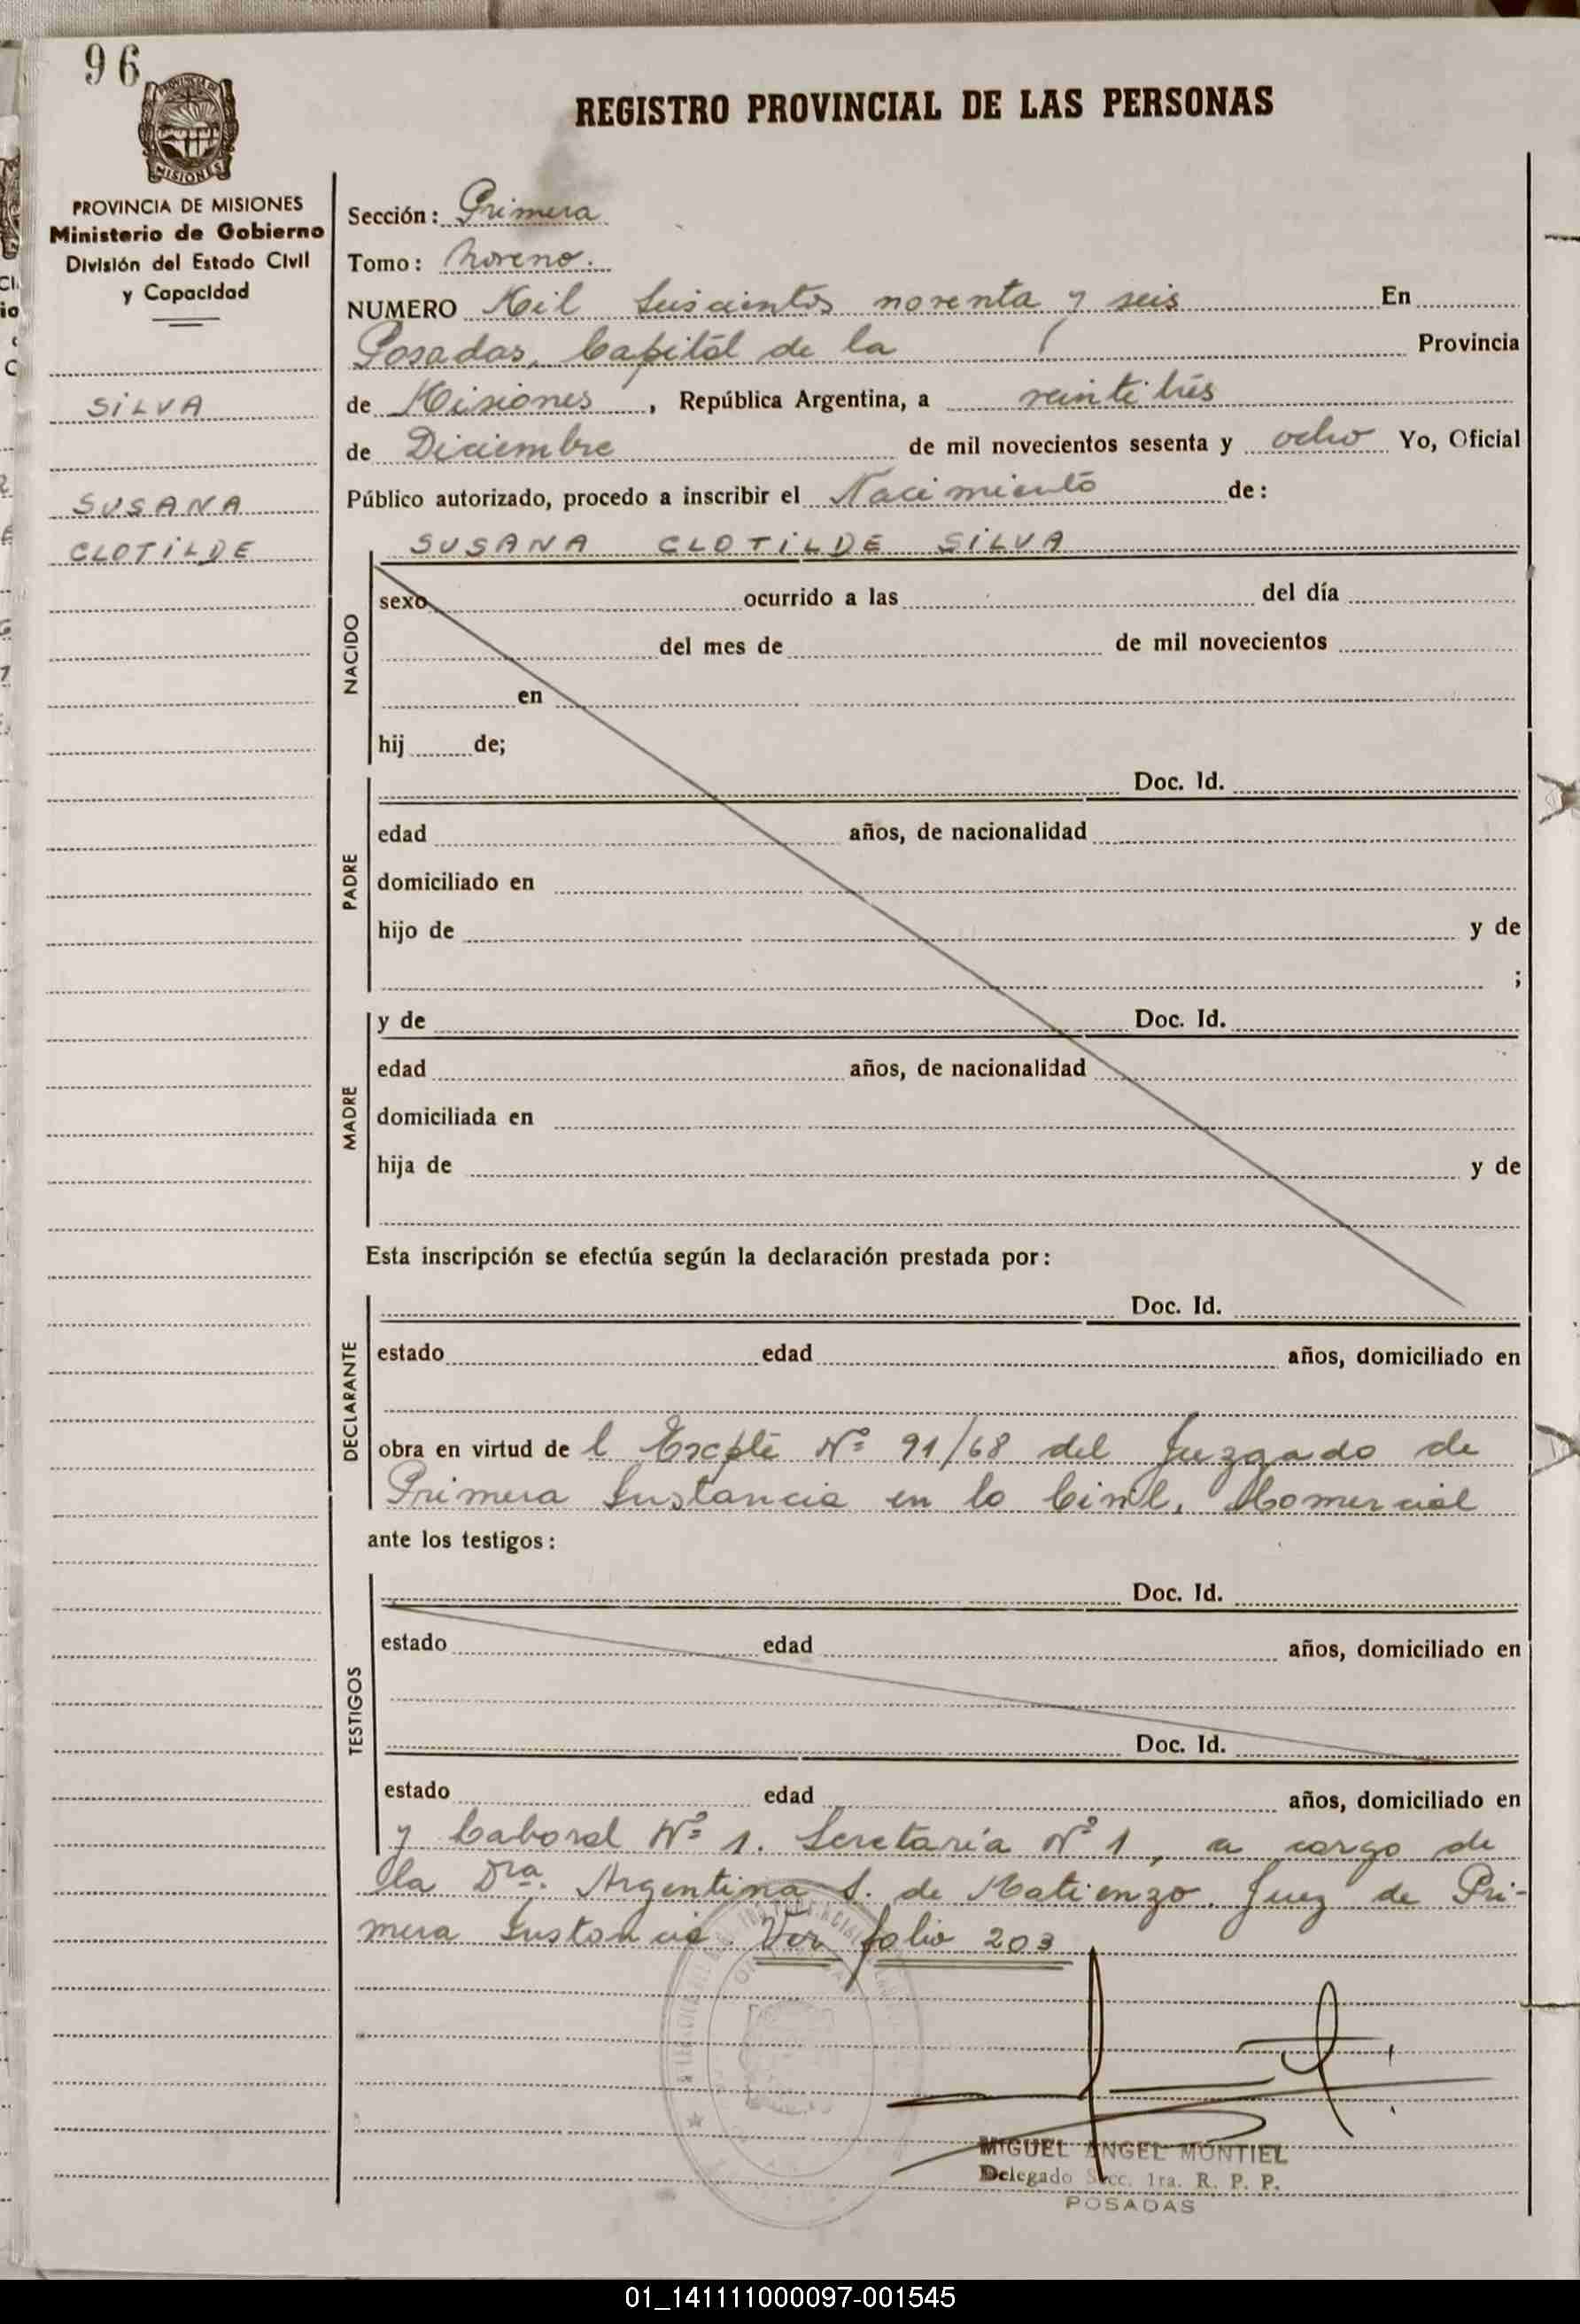 96
PROVINCIA DE
MISIONES
REGISTRO PROVINCIAL DE LAS PERSONAS
PROVINCIA DE MISIONES
Ministerio de Gobierno
División del Estado Civil
y Capacidad
SILVA
SUSANA
CLOTILDE
Sección: Primera
Tomo: Noveno.
NUMERO Mil Seiscientos noventa y seis En
Posadas, Capital de la Provincia
de Misiones, República Argentina, a veinte trés
de Diciembre de mil novecientos sesenta y ocho Yo, Oficial
Público autorizado, procedo a inscribir el Nacimiento de:
SUSANA CLOTILDE SILVA
NACIDO
sexo ocurrido a las del día
del mes de de mil novecientos
en
hij de;
PADRE
Doc. Id.
edad años, de nacionalidad
domiciliado en
hijo de y de
;
MADRE
y de Doc. Id.
edad años, de nacionalidad
domiciliada en
hija de y de
Esta inscripción se efectúa según la declaración prestada por:
DECLARANTE
Doc. Id.
estado edad años, domiciliado en
obra en virtud de l Expte Nº 91/68 del Juzgado de
Primera Instancia en lo Civil, Comercial
ante los testigos:
TESTIGOS
Doc. Id.
estado edad años, domiciliado en
Doc. Id.
estado edad años, domiciliado en
y Laboral Nº 1. Secretaría Nº 1, a cargo de
la Dra. Argentina S. de Matienzo. Juez de Pri-
mera Instancia. Ver folio 203
MIGUEL ANGEL MONTIEL
Delegado Secc. 1ra. R. P. P.
POSADAS
01_141111000097-001545